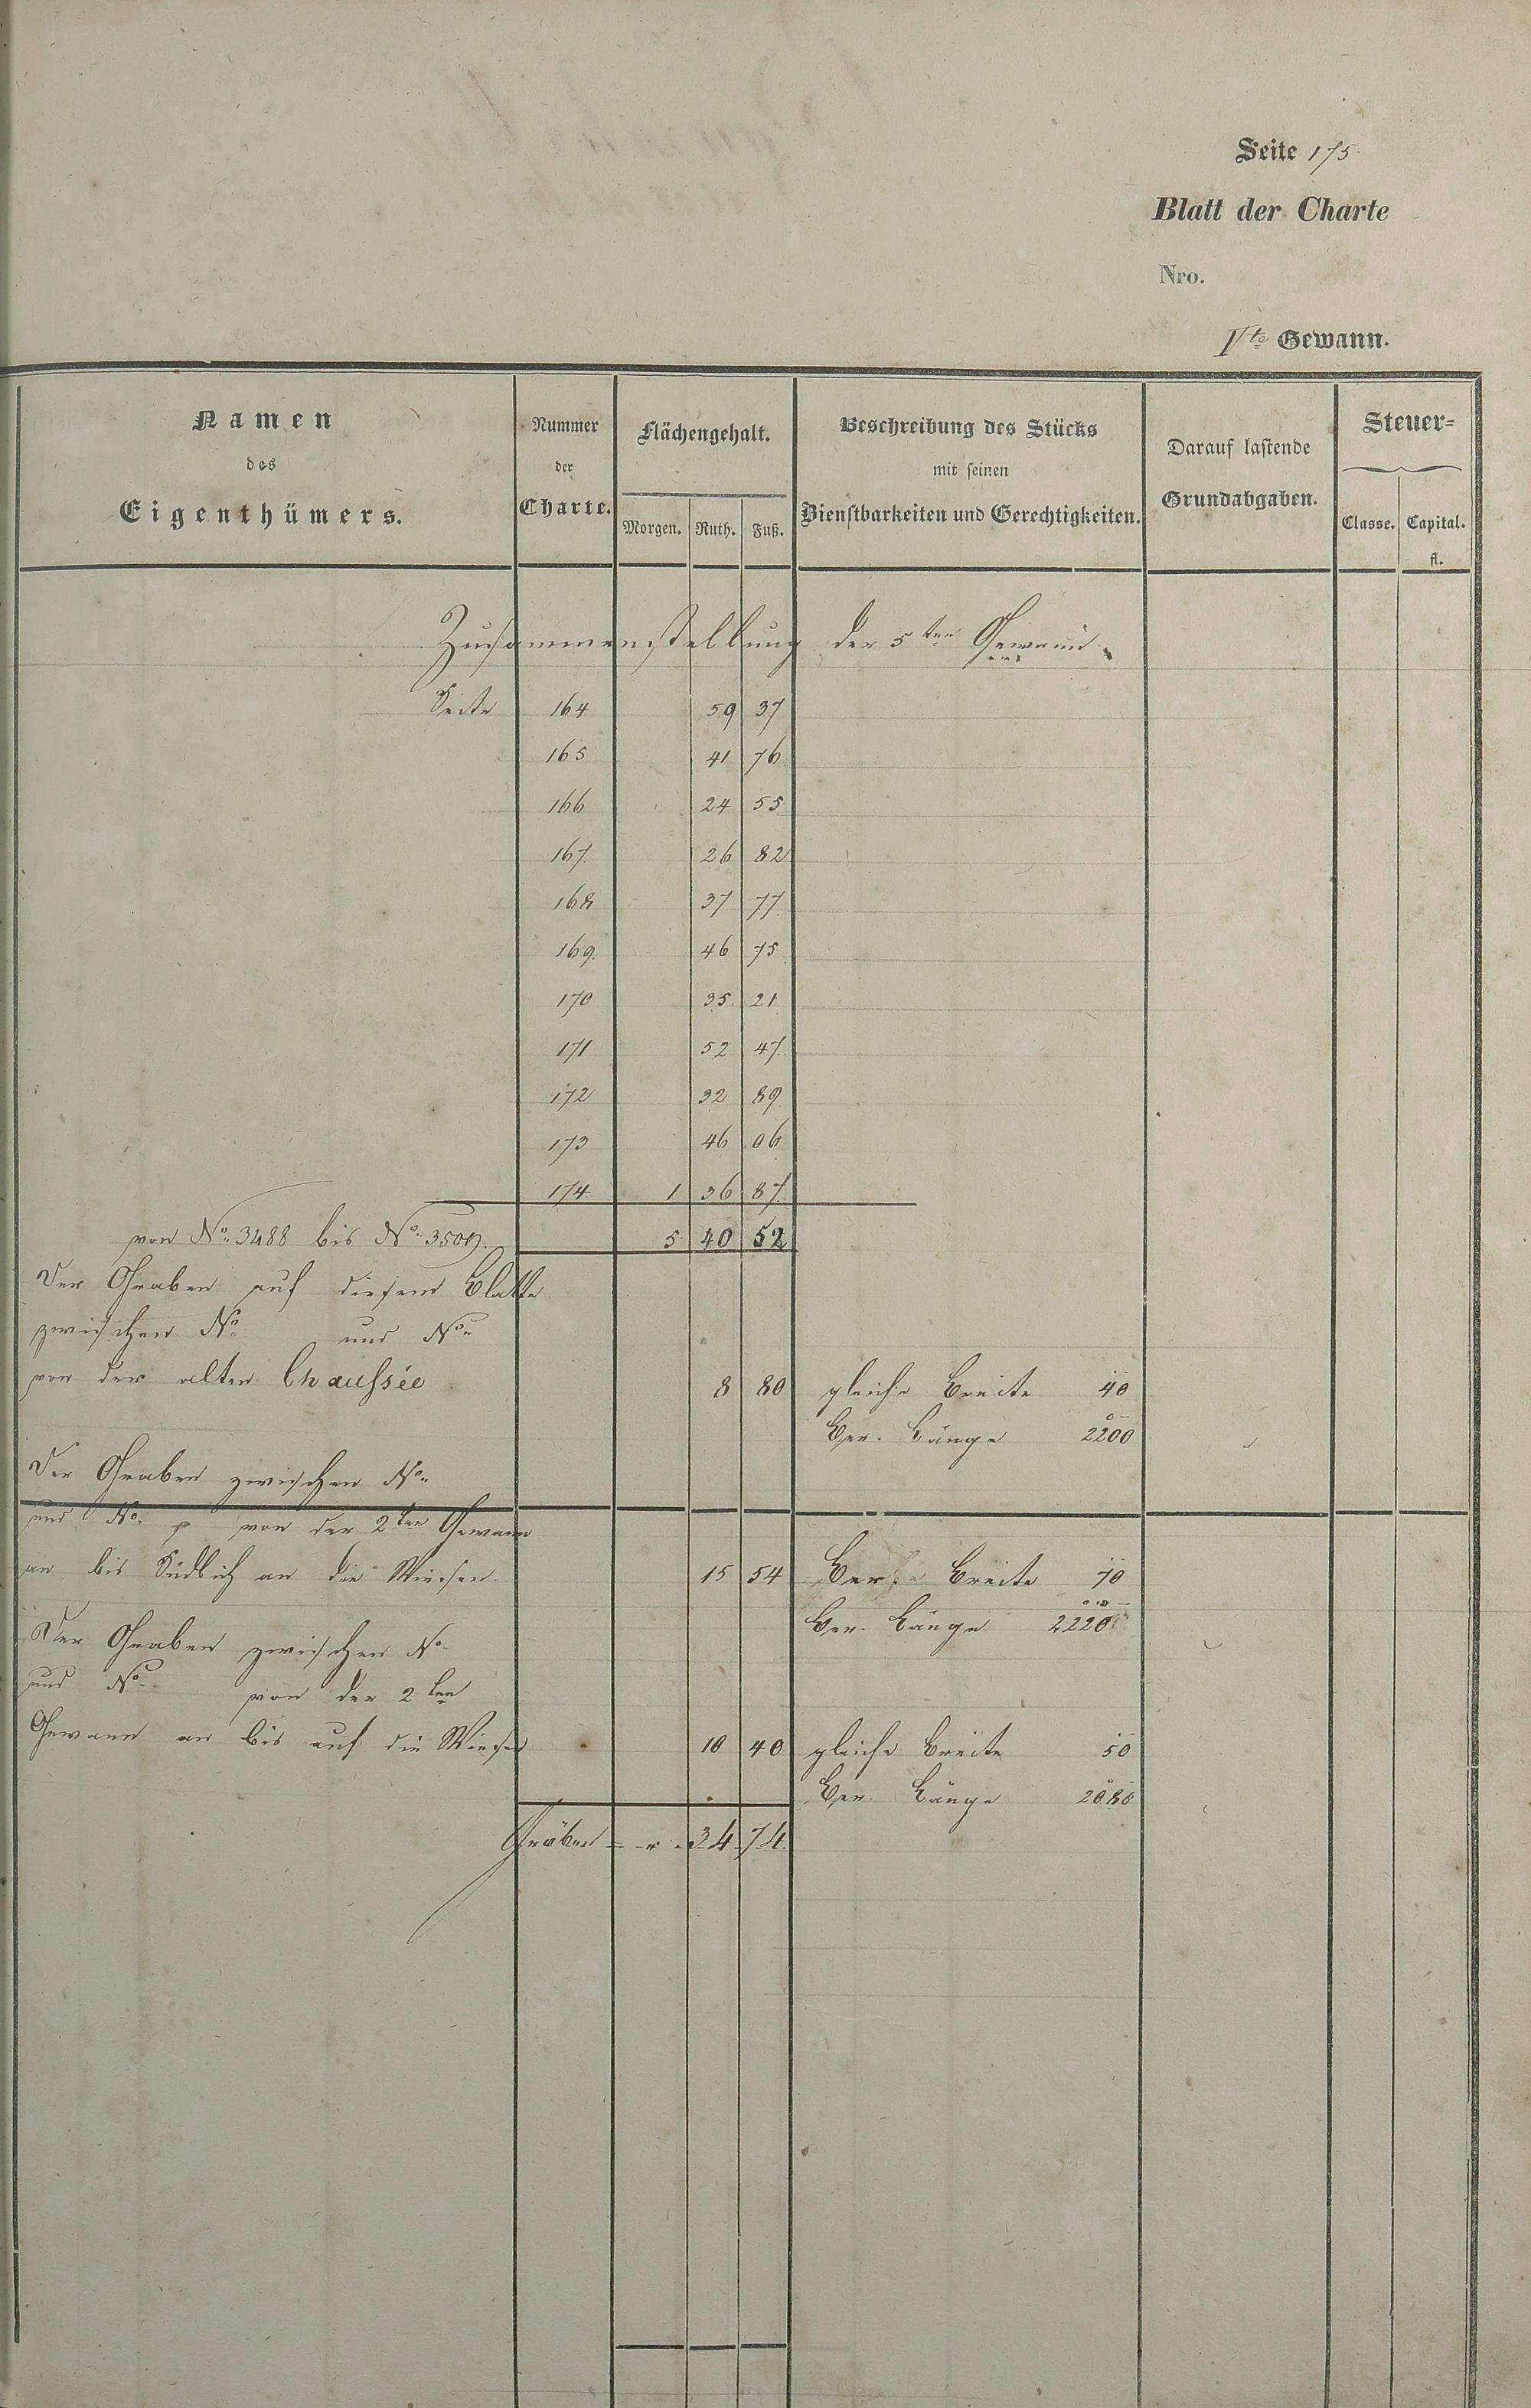 Seite 175
Blatt der Charte
Nro.
Vte Gewann.
Namen des Eigenthümers.
Nummer der Charte.
Flächengehalt.
Morgen. Ruth. Fuß.
Beschreibung des Stücks mit seinen Dienstbarkeiten und Gerechtigkeiten.
Darauf lastende Grundabgaben.
Steuer=
Classe. Capital.
fl.
Zusammenstellung der 5ten Gewann.
Seite 164 59 37
165 41 76
166 24 55
167. 26 82
168 37 77
169. 46 75
170 35 21
171 52 47
172 32 89
173 46 06
174 1 36 87
von No. 3488 bis No. 3509. 5 40 52
Der Graben auf diesem Blatte
zwischen No. und No.
von der alten Chaussée 8 80 gleiche Breite 40
Ber. Länge 2200
Der Graben zwischen No.
und No. von der 2ten Gewann
an bis Südlich an die Wiesen. 15 54 Ber. Breite 70
Ber. Länge 2220
Der Graben zwischen No.
und No. von der 2ten
Gewann an bis auf die Wiesen 10 40 gleiche Breite 50
Ber. Länge 2080
Gräben = 34 74